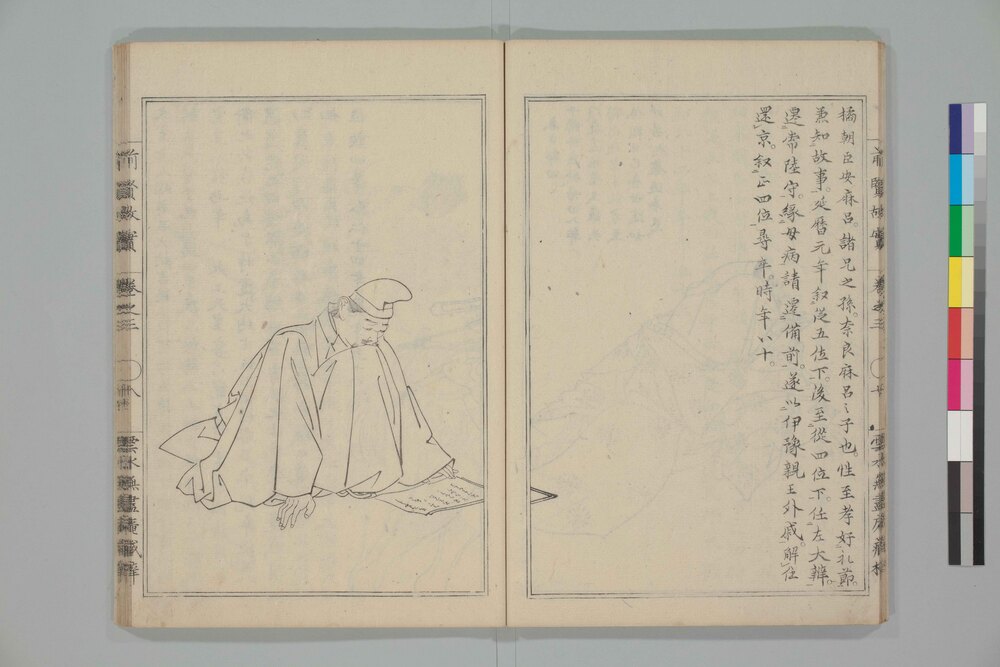 橘朝臣安麻呂。諸兄之孫。奈良麻呂之子也。性至孝好礼節。
兼知故事。延暦元年叙従五位下。後至從四位下。任左大辨。
遷常陸守。縁母病請遷備前。遂以伊豫親王外戚。解任
還京。叙正四位尋卒。時年八十。
前賢故實
卷之三
雲水無盡庵藏梓
前賢故實
卷之三
雲水無盡庵藏梓